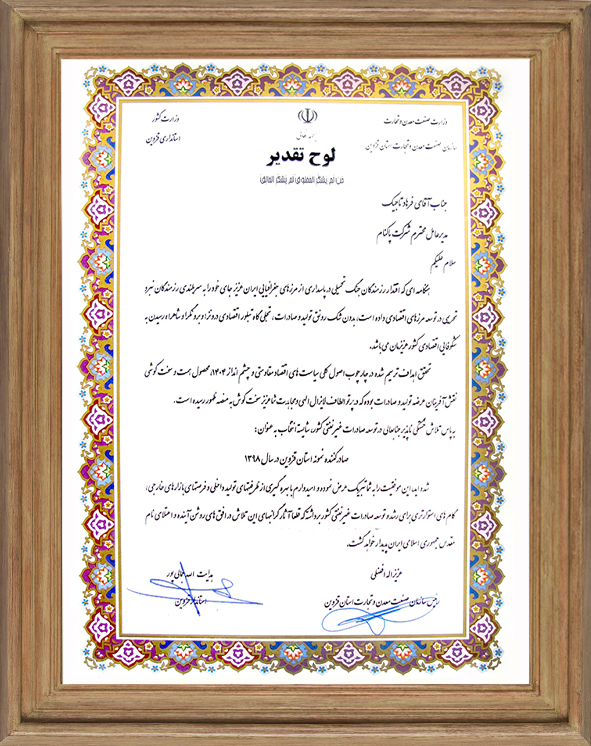 وزارت صنعت معدن و تجارت
سازمان صنعت معدن و تجارت استان قزوین
وزارت کشور
استانداری قزوین
لوح تقدیر
من لم یشکر المخلوق لم یشکر الخالق
جناب آقای فرهاد تاجیک
مدیرعامل محترم شرکت پاکنام
سلام علیکم
هنگامه ای که اقتدار رزمندگان جنگ تحمیلی در پاسداری از مرزهای جغرافیایی ایران عزیز جای خود را به سربلندی رزمندگان نبرد
تحریمی در توسعه مرزهای اقتصادی داده است، بدون شک رونق تولید و صادرات، تجلی گاه تبلور اقتصادی درونزا و برونگرا و شاهراه رسیدن به
شکوفایی اقتصادی کشور عزیزمان می باشد.
تحقق اهداف ترسیم شده در چارچوب اصول کلی سیاست های اقتصاد مقاومتی و چشم انداز ۱۴۰۴، محصول همت و سخت کوشی
نقش آفرینان عرصه تولید و صادرات بوده که در پرتو الطاف لایزال الهی و مجاهدت شما عزیز سخت کوش به منصه ظهور رسیده است.
به پاس تلاش خستگی ناپذیر جنابعالی در توسعه صادرات غیرنفتی کشور، شایسته انتخاب به عنوان :
صادر کننده نمونه استان قزوین در سال ۱۳۹۸
شده اید، این موفقیت را به شما تبریک عرض نموده و امیدوارم با بهره گیری از ظرفیتهای تولید داخلی و فرصتهای بازارهای خارجی،
گام های استوارتری برای رشد و توسعه صادرات غیرنفتی کشور برداشته که قطعا آثار گرانبهای این تلاش در افق های روشن آینده و اعتلای نام
مقدس جمهوری اسلامی ایران پدیدار خواهد گشت.
عزیزاله افضلی
رئیس سازمان صنعت معدن و تجارت استان قزوین
هدایت اله جمالی پور
استاندار قزوین